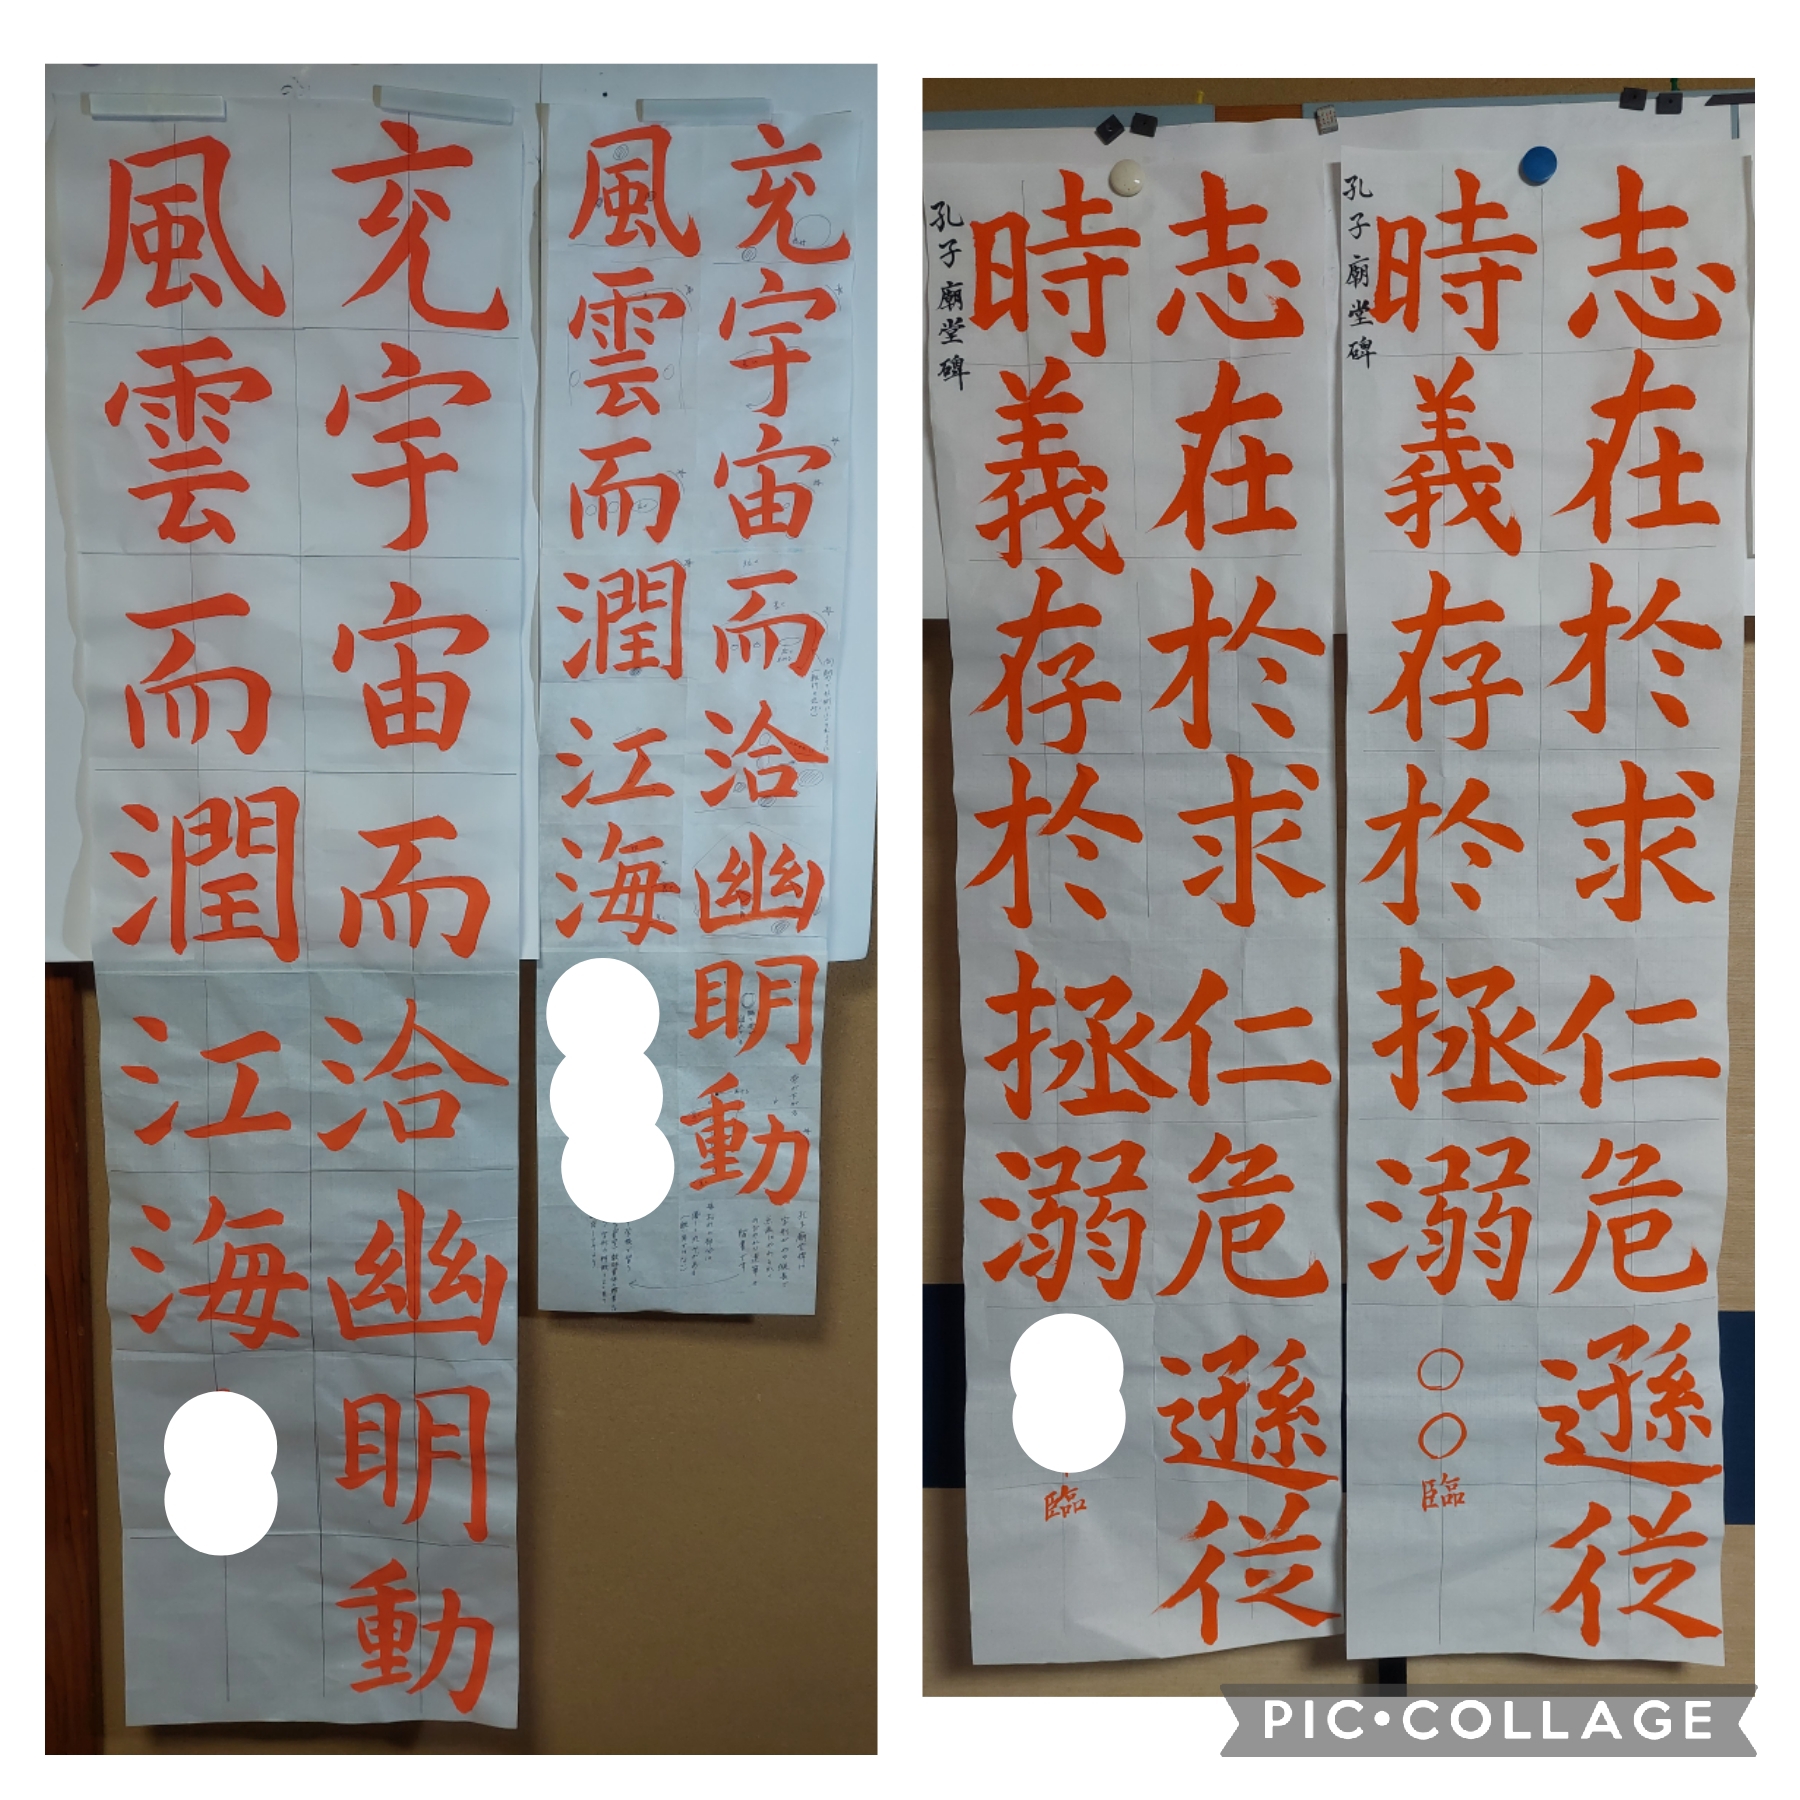 充宇宙而洽幽明動
風雲而潤江海
充宇宙而洽幽明動
風雲而潤江海
志在於求仁危遜従
時義存於拯溺
臨
孔子廟堂碑
志在於求仁危遜従
時義存於拯溺
○○臨
孔子廟堂碑
PIC•COLLAGE